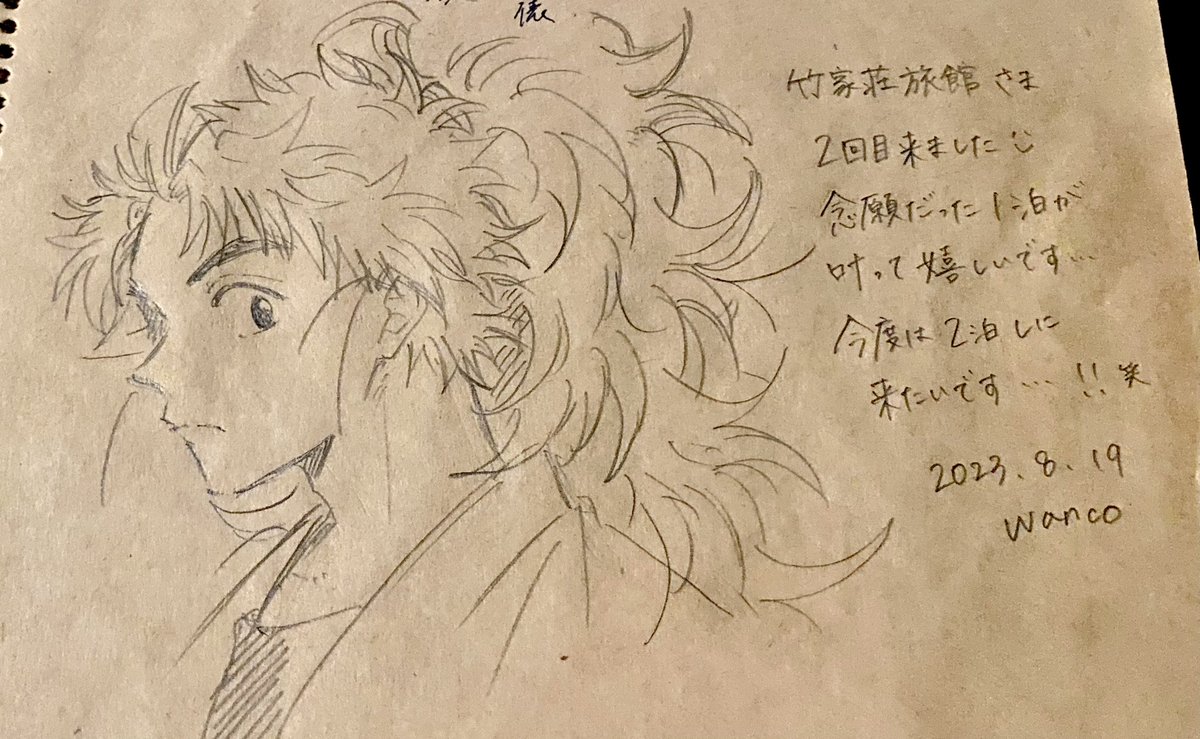 俵
竹家荘旅館さま
2回目来ました
念願だった1泊が
叶って嬉しいです…
今度は2泊しに
来たいです…!!笑
2023.8.19
wanco